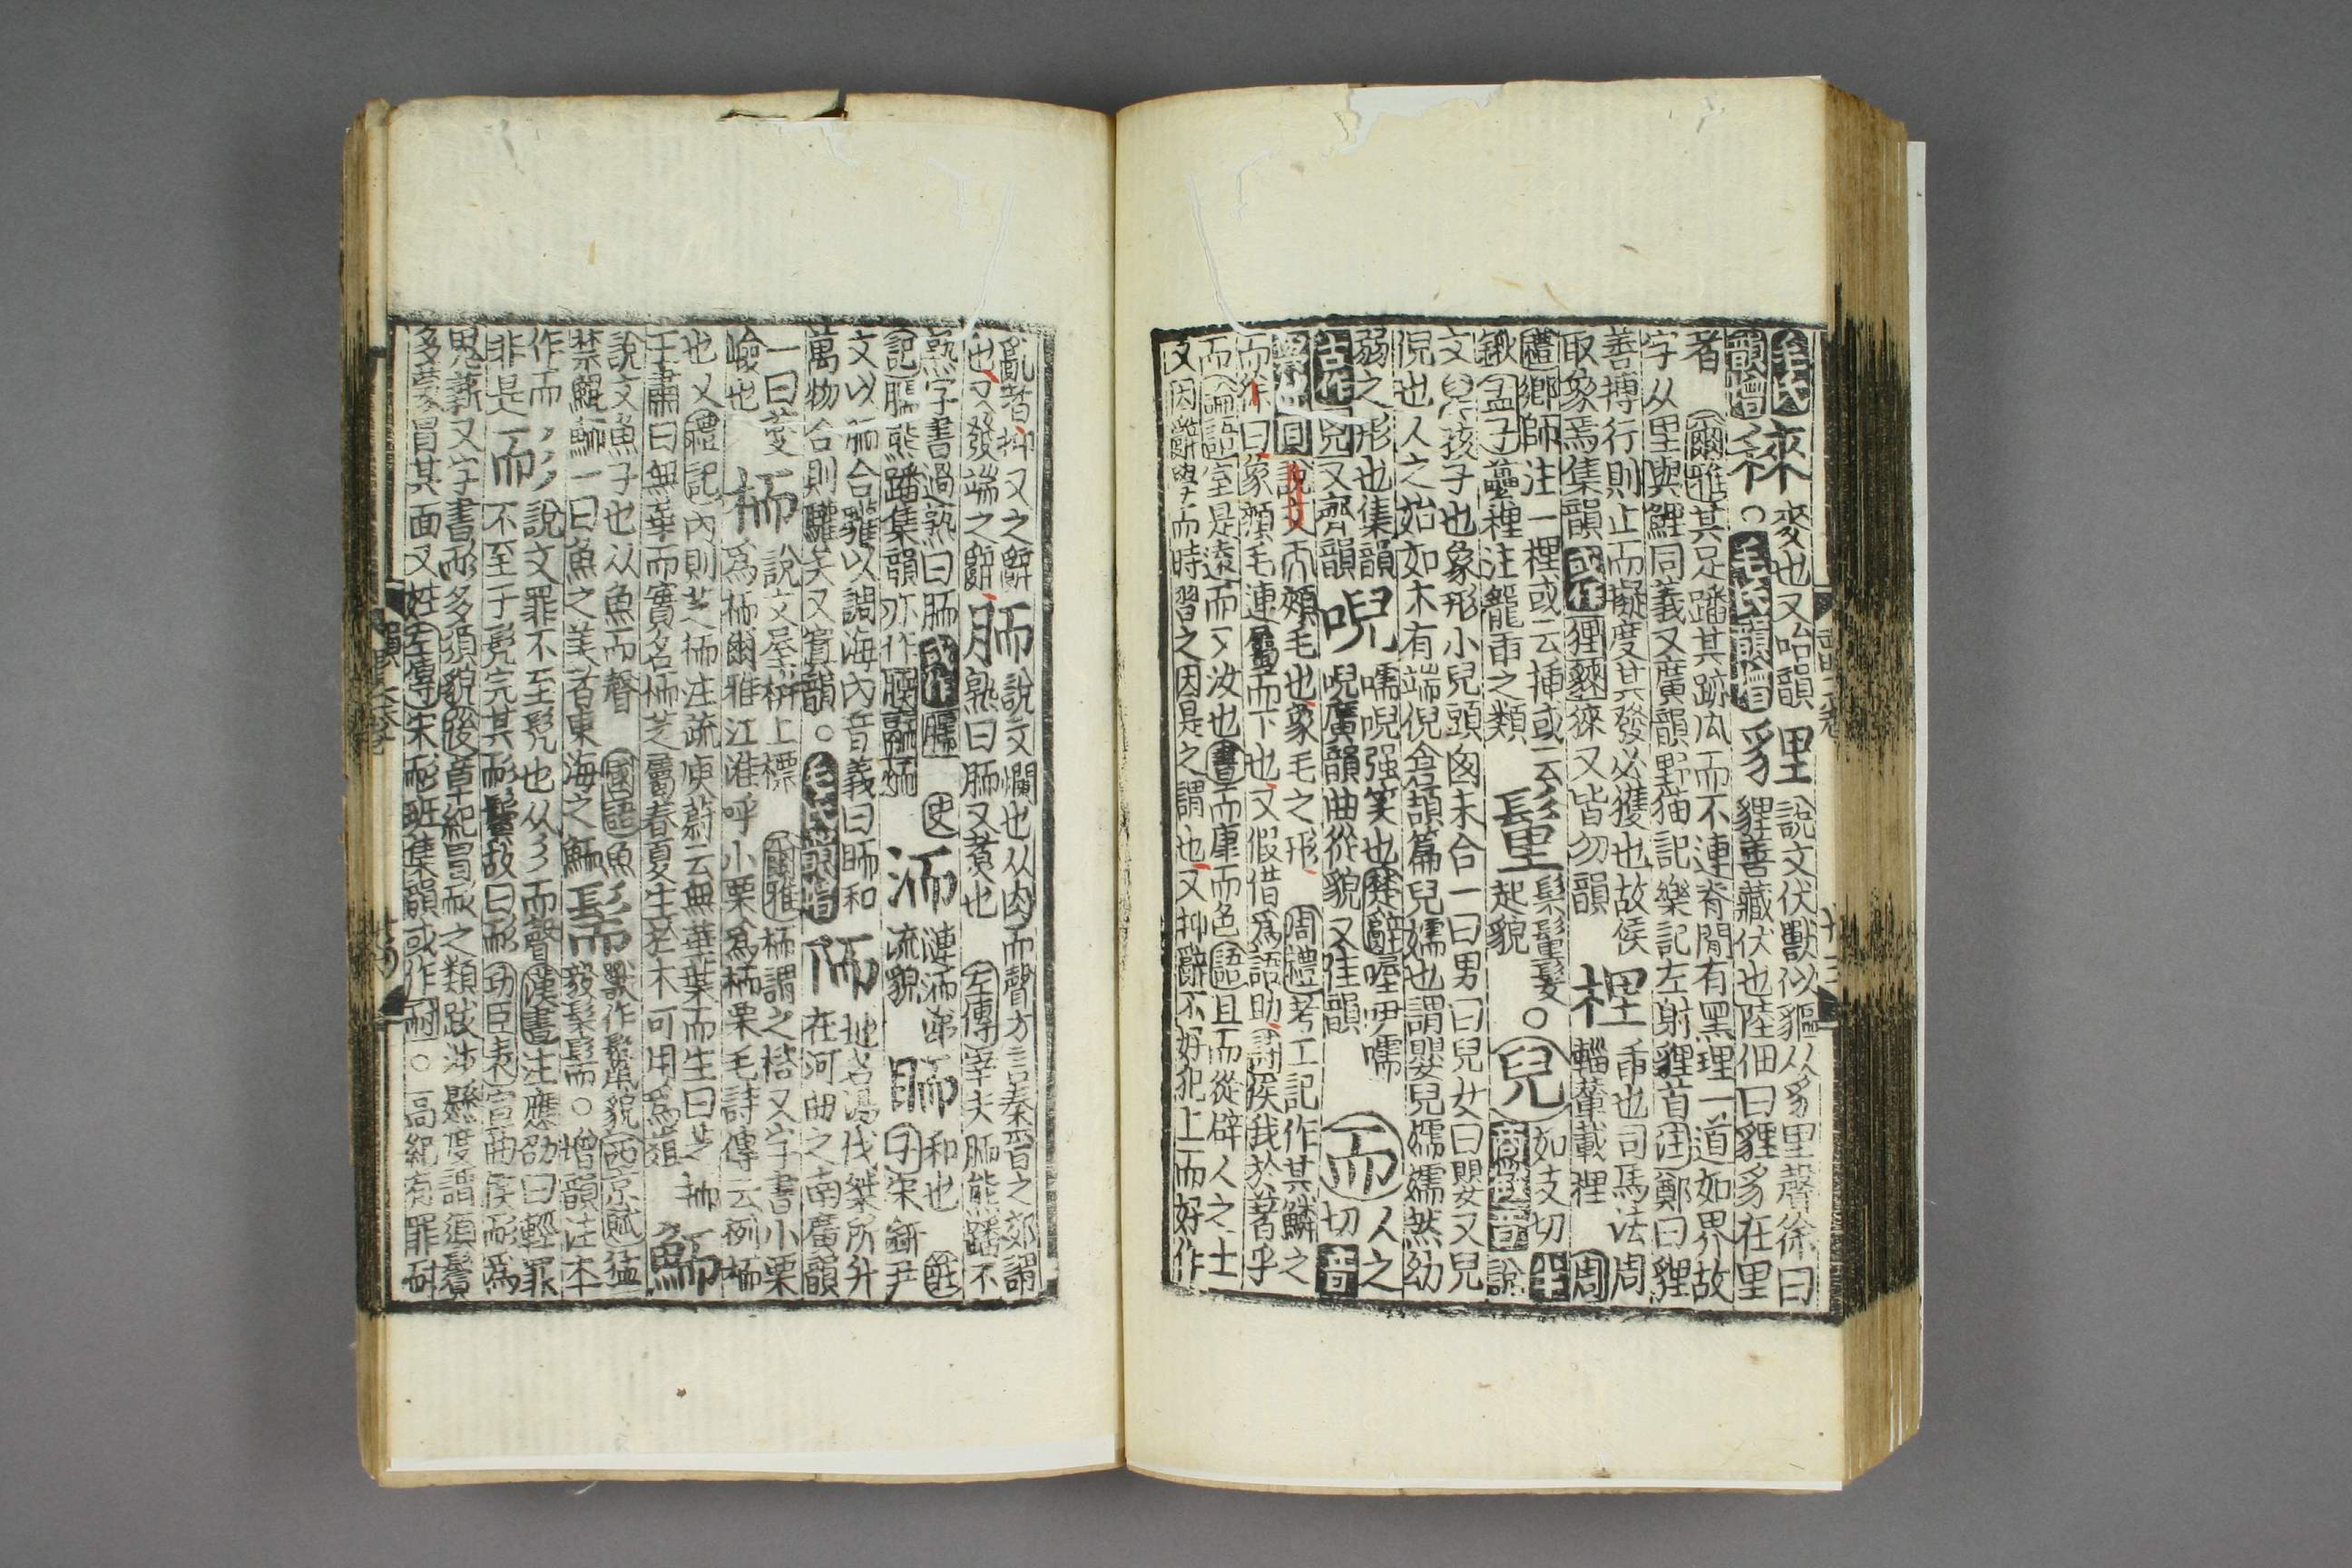 毛氏 麥也又咍韻 說文伏獸似貙从豸里聲徐曰
韻增 䅘○毛氏韻增 貍 貍善藏伏也陸佃曰貍豸在里
者 爾雅其足蹯其跡厹而不連脊間有黑理一道如界故
字从里與鯉同義又廣韻野猫記樂記左射貍首注鄭曰貍
善搏行則止而擬度其發必獲也故侯 臿也司馬法周
取象焉集韻或作狸又皆勿韻 梩 輜輦載梩 周
禮鄉師注一梩或云插或云 髤髮○ 如支切 半
鍬孟子虆梩注籠臿之類 起貌 兒 商徵音 說
文兒孩子也象形小兒頭囟未合一曰男曰兒女曰嬰又兒
倪也人之始如木有端倪倉頡篇兒嬬也謂嬰兒嬬嬬然幼
弱之形也集韻 嚅唲强笑也楚辭喔咿嚅 人之
古作兒又齊韻 唲 唲廣韻曲從貌又佳韻 而 切 音
說文而頰毛也象毛之形 周禮考工記作其鱗之
而徐曰象頰毛連屬而下也又假借爲語助詩俟我於著乎
而論語室是遠而又汝也書而康而色語且而從辟人之士
又因辭學而時習之因是之謂也又抑辭不好犯上而好作
亂者抑又之辭 說文爛也从肉而聲方言秦晉之郊謂
也又發端之辭 胹 熟曰胹又煑也 左傳宰夫胹熊蹯不
熟字書過熟曰胹或作臑 史 漣洏涕 和也 莊
記臑熊蹯集韻亦作 洏 流貌 聏 子宋鈃尹
文以聏合驩以調海內音義曰聏和 地名湯伐桀所升
萬物合則驩笑又賓韻○毛氏韻增 陑 在河曲之南廣韻
一曰菱 說文屋枅上標 爾雅栭謂之楶又字書小栗
嶮也 栭 爲栭爾雅江淮呼小栗爲栭栗毛詩傳云栵栭
也又禮記內則芝栭注疏庾蔚云無華葉而生曰芝栭
王肅曰無華而實名栭芝屬春夏生於木可用爲葅 鮞
說文魚子也从魚而聲 國語魚 獸作髵鬣貌西京賦猛
禁鯤鮞一曰魚之美者東海之鮞 髵 毅髬髵○增韻注本
作而 說文罪不至髡也从彡而聲漢書注應劭曰輕罪
非是 耏 不至于髡完其耏鬢故曰耏功臣表宣曲侯耏爲
鬼薪又字書耏多須貌後章紀冒耏之類跋涉懸度謂須鬢
多蒙冒其面又姓左傳宋耏班集韻或作耐○高紀有罪耐